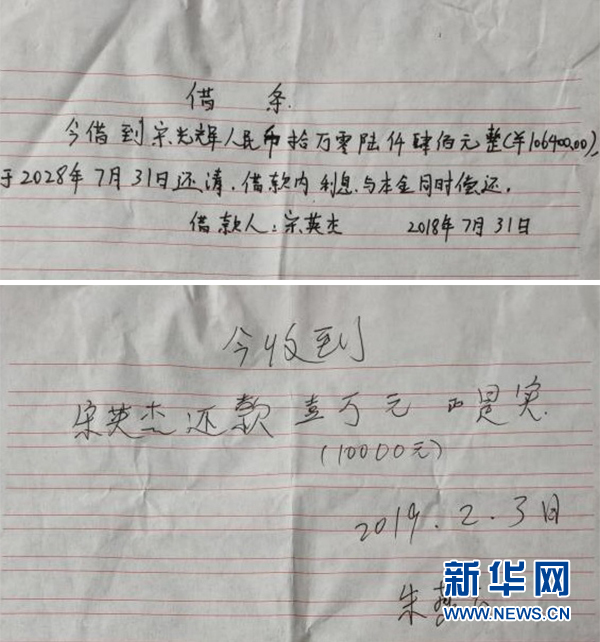 借 条
今借到宋光辉人民币拾万零陆仟肆佰元整(¥106400.00),
于2028年7月31日还清.借款内利息.与本金同时偿还.
借款人:宋英杰 2018年7月31日
今收到
宋英杰还款 壹万元 是实.
(10000元)
2019.2.3日
朱
新华网
WWW.NEWS.CN